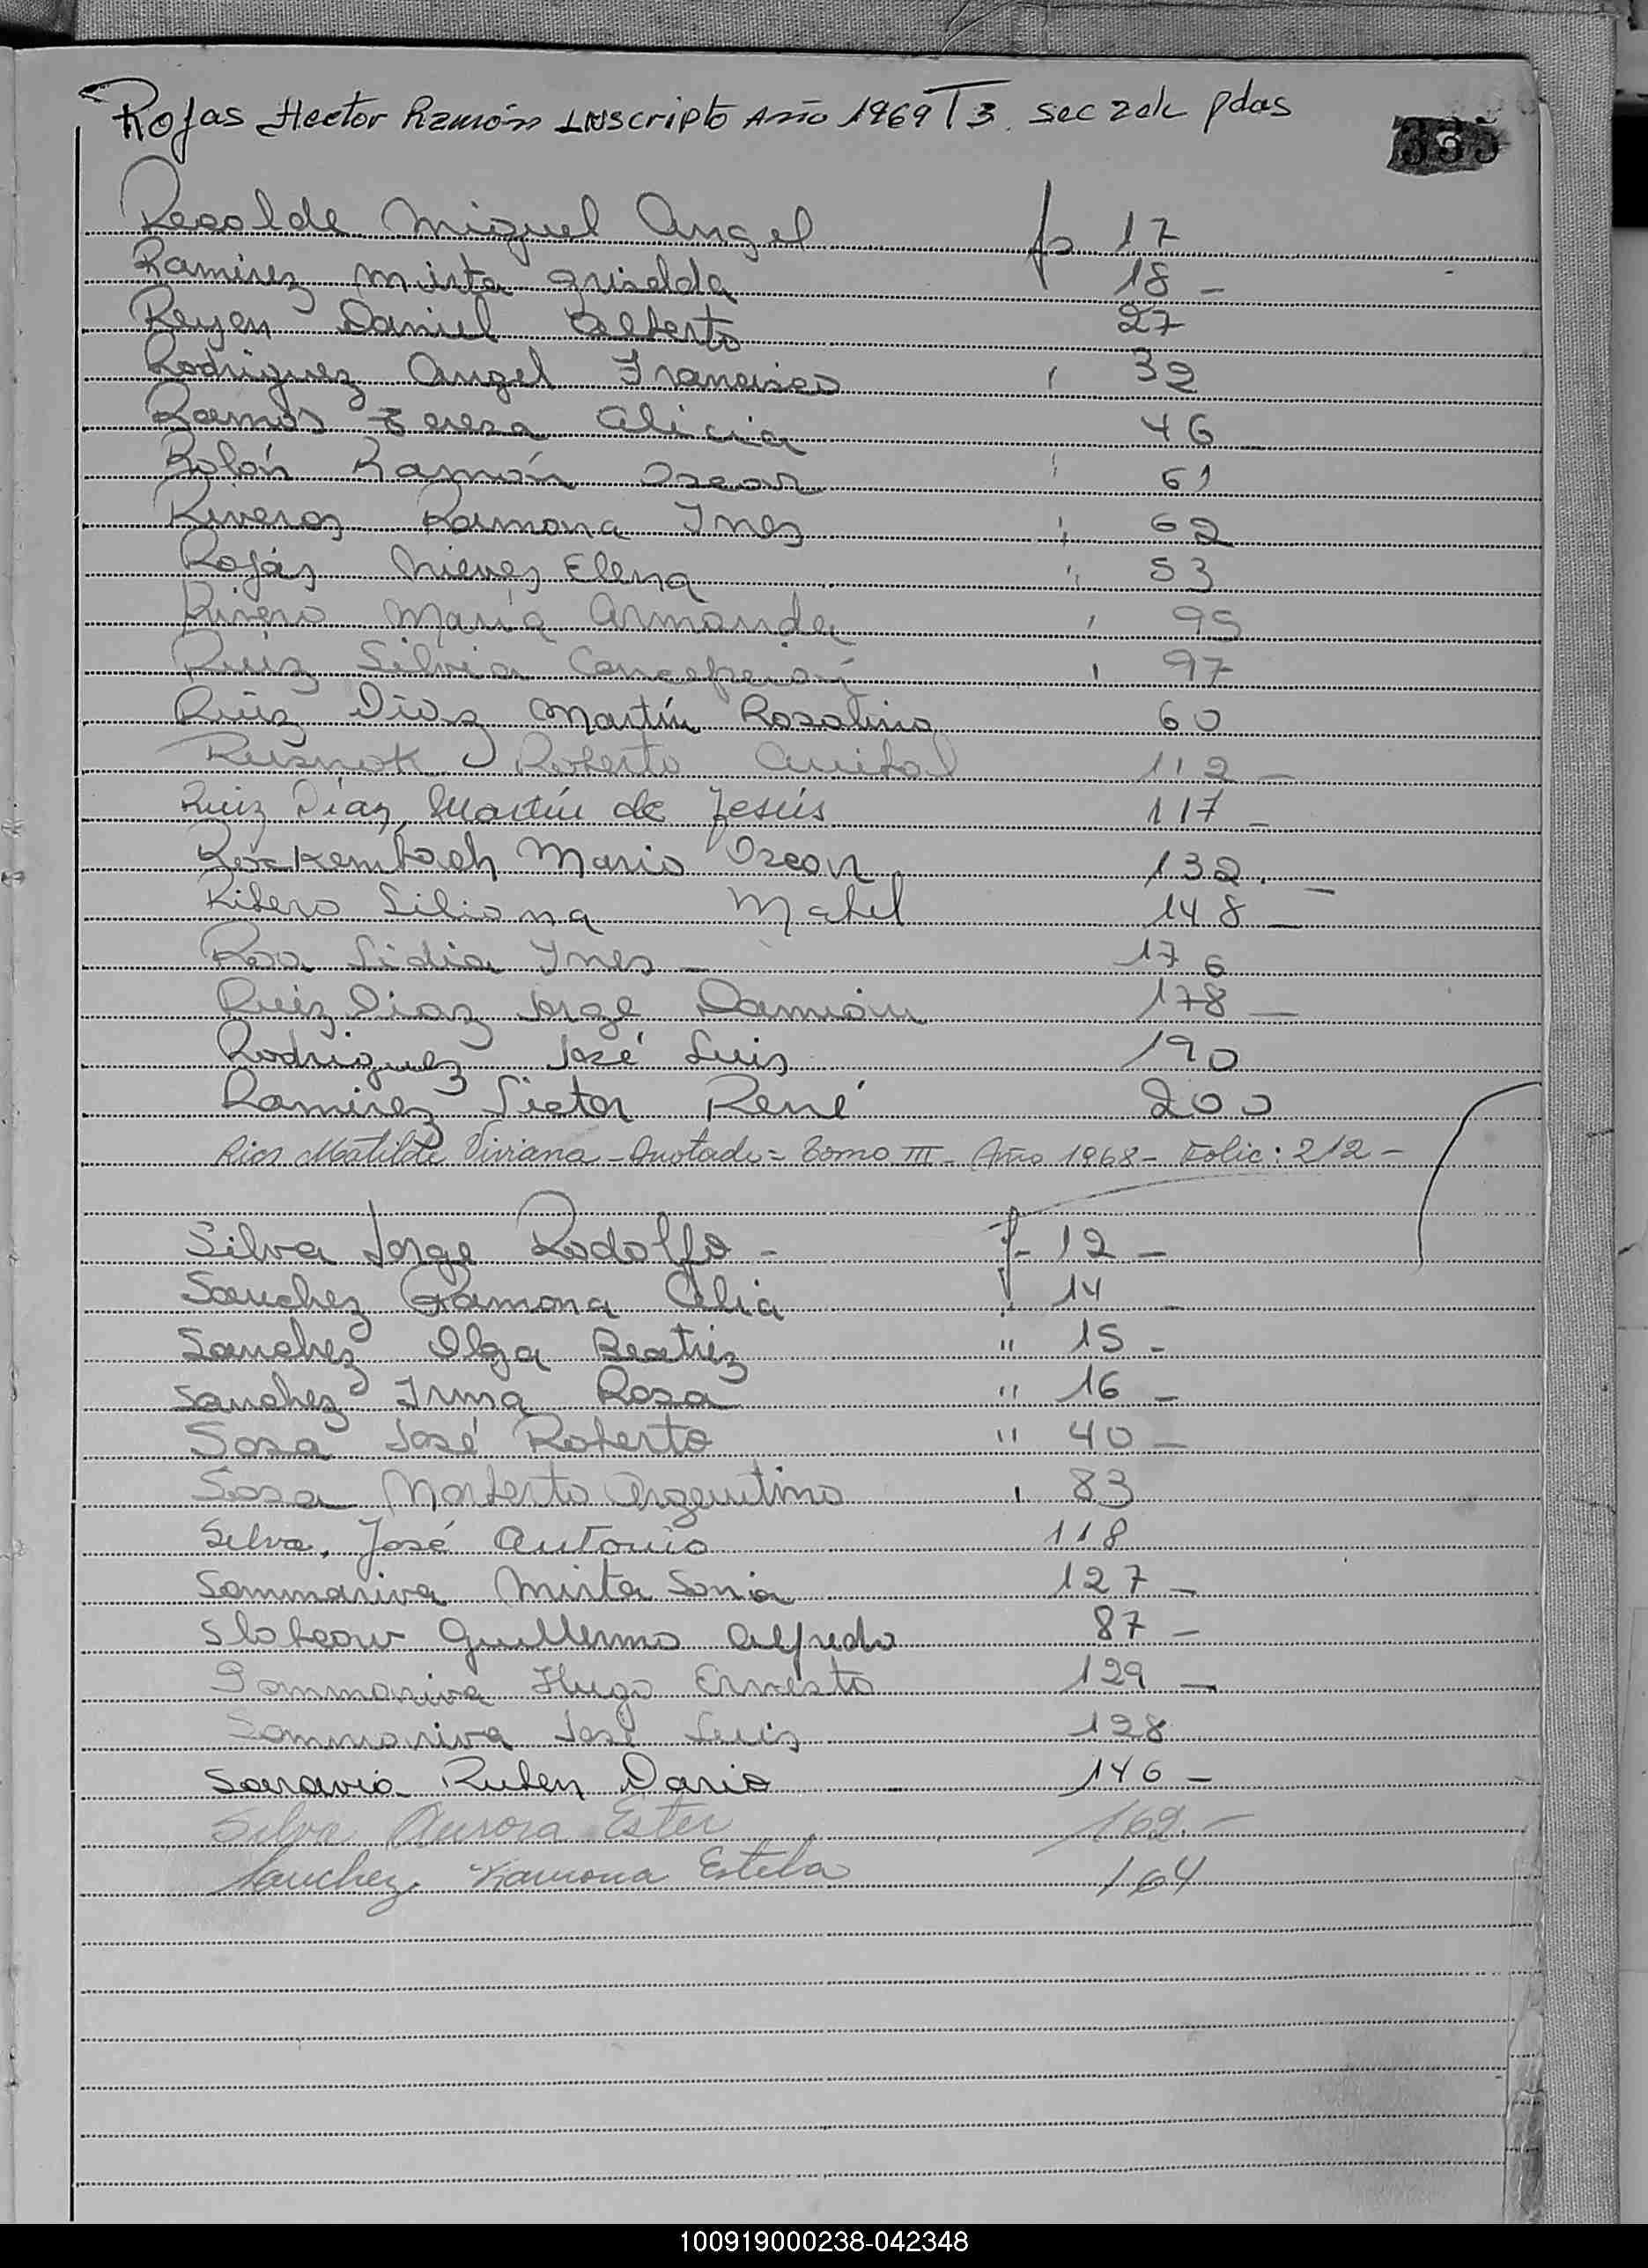 Rojas Hector Ramón Inscripto Año 1969 T 3. Sec 2da pdas
335
Recalde Miguel Angel fo 17
Ramirez Mirta Griselda 18 -
Reyes Daniel Alberto 27
Rodriguez Angel Francisco " 32
Ramos Teresa Alicia 46
Rolón Ramón Oscar " 61
Riveros Ramona Ines " 62
Rojas Nieves Elena " 53
Rivero Maria Armanda " 95
Ruiz Silvia Concepción " 97
Ruiz Diaz Martín Rosalino 60
Roberto Anibal 112 -
Ruiz Diaz, Martín de Jesús 117 -
Rockembach Mario Oscar 132. -
Ribero Liliana Mabel 148 -
Roa Lidia Ines - 176
Ruiz Diaz Jorge Damián 178 -
Rodriguez José Luis 190
Ramirez Victor René 200
Rios Matilde Viviana - Anotado = Tomo III - Año 1968 - Folio: 212 -
Silva Jorge Rodolfo - f- 12 -
Sanchez Ramona Celia " 14 -
Sanchez Olga Beatriz " 15 -
Sanchez Irma Rosa " 16 -
Sosa José Roberto " 40 -
Sosa Norberto Argentino " 83
Silva, José Antonio 118
Sommariva Mirta Sonia 127 -
Guillermo Alfredo 87 -
Sommariva Hugo Ernesto 129 -
Sommariva José Luis 128
Saravia Ruben Dario 146 -
Silva Aurora Ester 162. -
Sanchez Ramona Estela 164
100919000238-042348